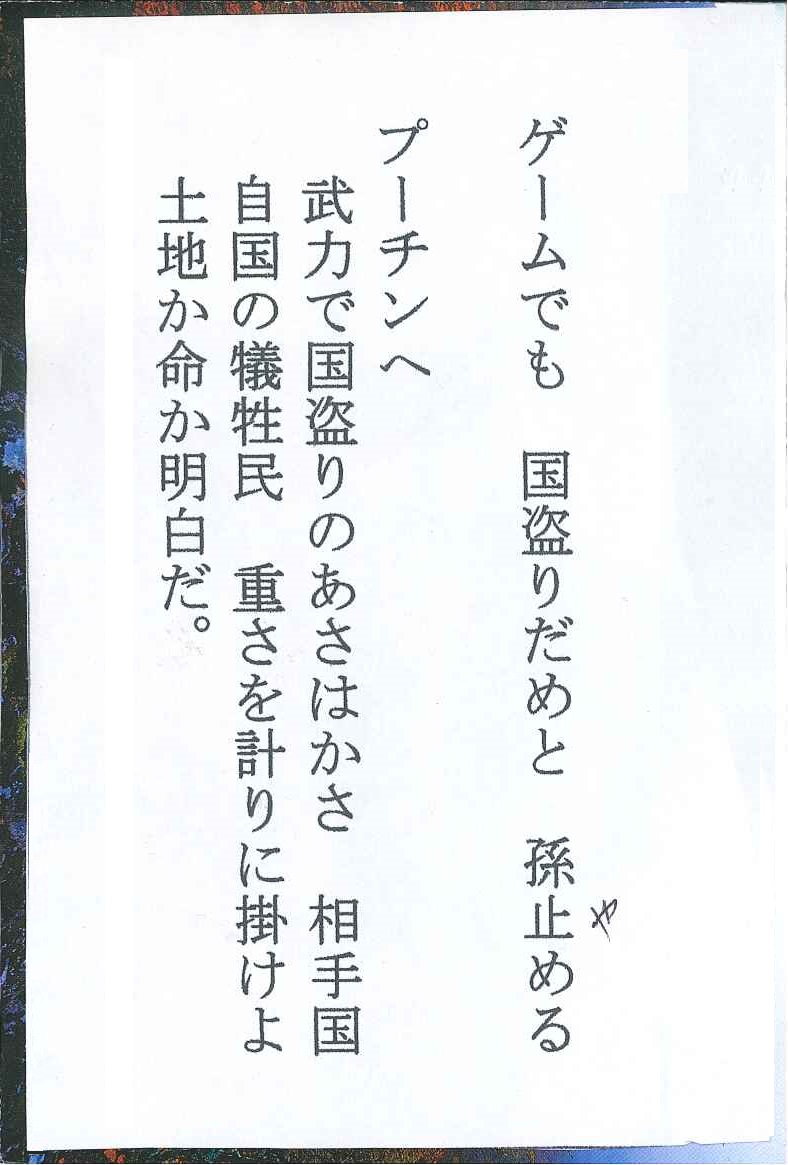 ゲームでも　国盗りだめと　孫止める
や
プーチンへ
武力で国盗りのあさはかさ　相手国
自国の犠牲民　重さを計りに掛けよ
土地か命か明白だ。